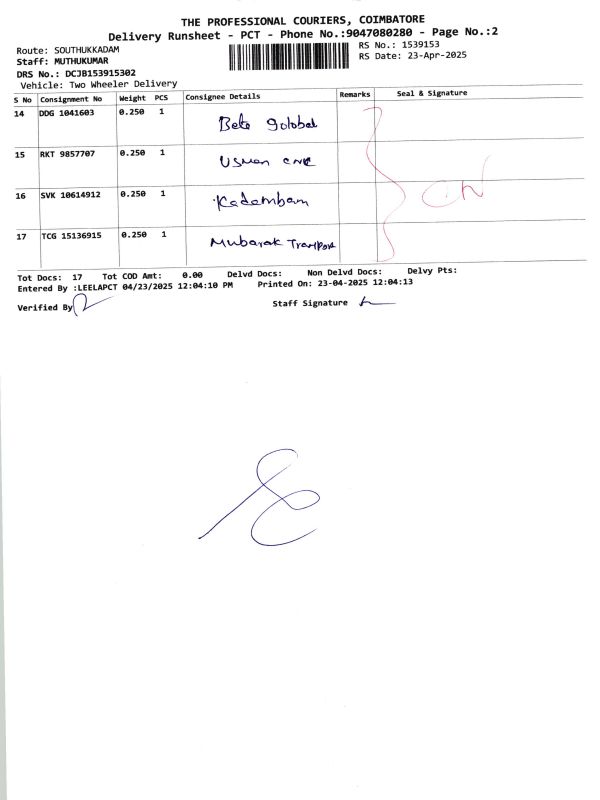 THE PROFESSIONAL COURIERS, COIMBATORE
Delivery Runsheet - PCT - Phone No.:9047080280 - Page No.:2
Route: SOUTHUKKADAM
RS No.: 1539153
Staff: MUTHUKUMAR
RS Date: 23-Apr-2025
DRS No.: DCJB153915302
Vehicle: Two Wheeler Delivery
S No Consignment No Weight PCS Consignee Details Remarks Seal & Signature
14 DDG 1041603 0.250 1 Beta golobal
15 RKT 9857707 0.250 1 Usman CNC
16 SVK 10614912 0.250 1 Kadambam
17 TCG 15136915 0.250 1 Mubarak Transport
Tot Docs: 17 Tot COD Amt: 0.00 Delvd Docs: Non Delvd Docs: Delvy Pts:
Entered By :LEELAPCT 04/23/2025 12:04:10 PM Printed On: 23-04-2025 12:04:13
Verified By Staff Signature